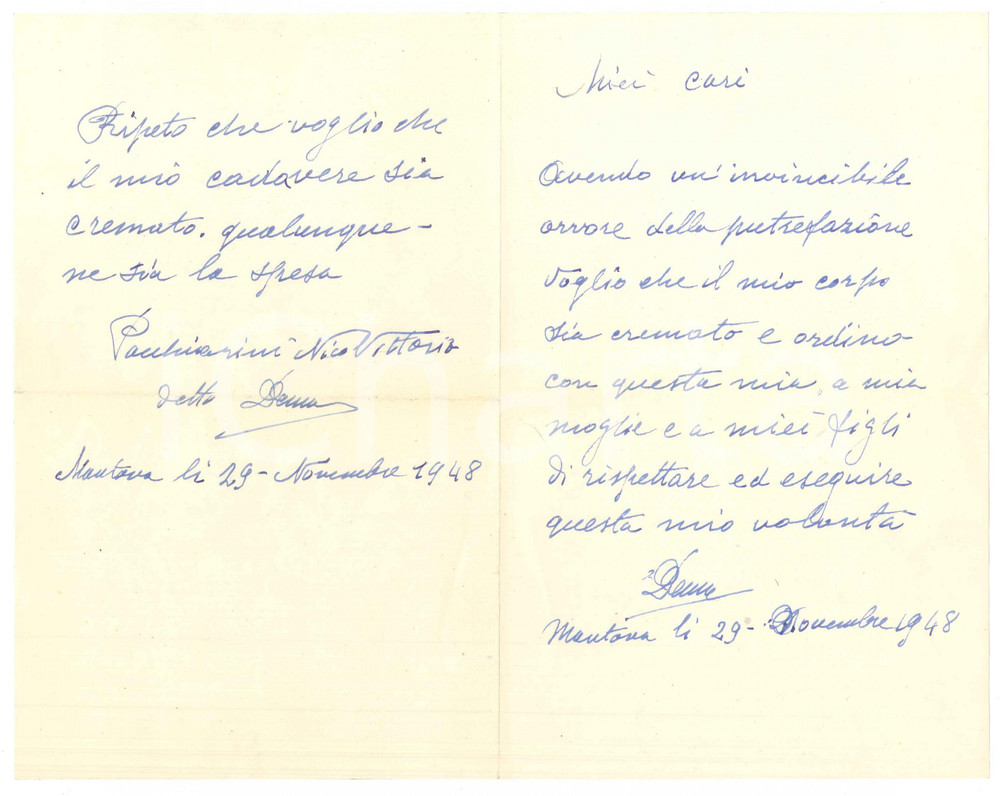 Miei cari
Avendo un'invincibile
orrore della putrefazione
voglio che il mio corpo
sia cremato e ordino
con questa mia, a mia
moglie e a miei figli
di rispettare ed eseguire
questa mio volontà
Dema
Mantova li 29 - Novembre 1948
Ripeto che voglio che
il mio cadavere sia
cremato. qualunque -
ne sia la spesa
Pacchiarini Nico Vittorio
detto Dema
Mantova li 29 - Novembre 1948